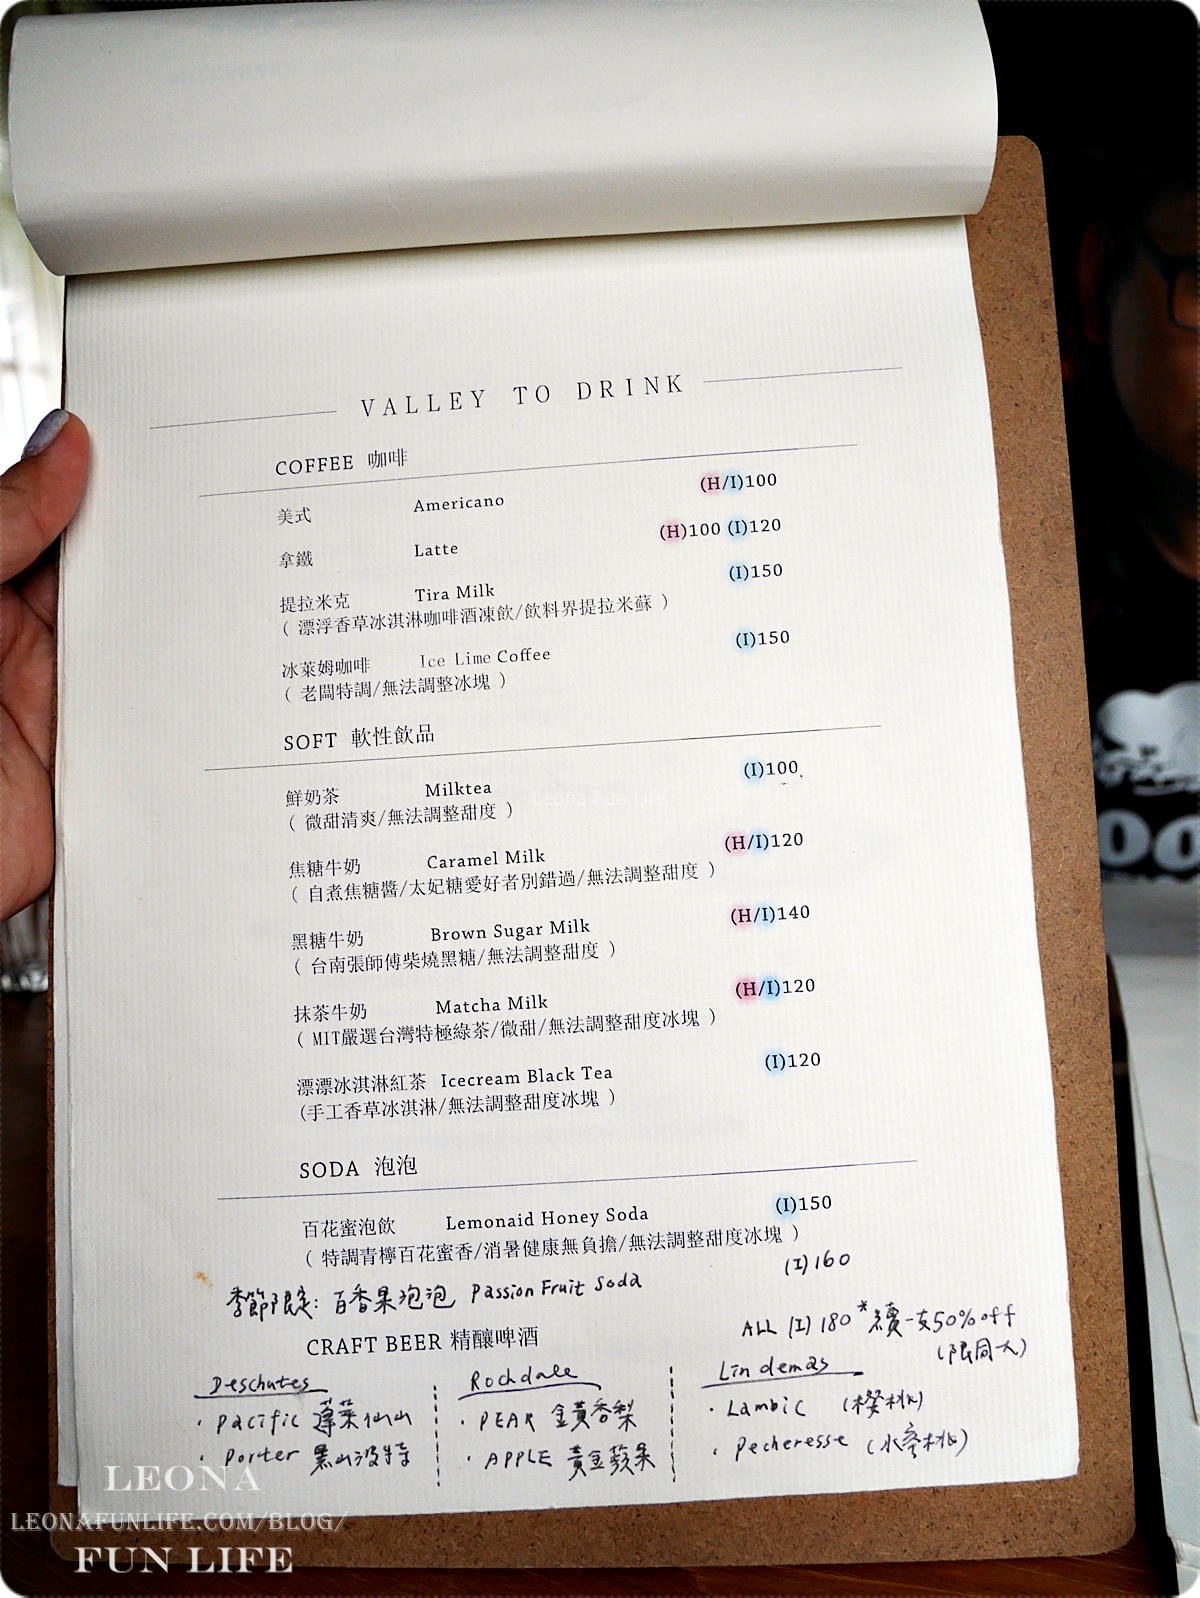 VALLEY TO DRINK
COFFEE 咖啡
美式 Americano (H/I)100
拿鐵 Latte (H)100 (I)120
提拉米克 Tira Milk (I)150
( 漂浮香草冰淇淋咖啡酒凍飲/飲料界提拉米蘇 )
冰萊姆咖啡 Ice Lime Coffee (I)150
( 老闆特調/無法調整冰塊 )
SOFT 軟性飲品
鮮奶茶 Milktea (I)100
( 微甜清爽/無法調整甜度 )
Leona Fun Life
焦糖牛奶 Caramel Milk (H/I)120
( 自煮焦糖醬/太妃糖愛好者別錯過/無法調整甜度 )
黑糖牛奶 Brown Sugar Milk (H/I)140
( 台南張師傅柴燒黑糖/無法調整甜度 )
抹茶牛奶 Matcha Milk (H/I)120
( MIT嚴選台灣特極綠茶/微甜/無法調整甜度冰塊 )
漂漂冰淇淋紅茶 Icecream Black Tea (I)120
(手工香草冰淇淋/無法調整甜度冰塊 )
SODA 泡泡
百花蜜泡飲 Lemonaid Honey Soda (I)150
( 特調青檸百花蜜香/消暑健康無負擔/無法調整甜度冰塊 )
季節限定: 百香果泡泡 Passion Fruit Soda (I)160
CRAFT BEER 精釀啤酒 ALL (I) 180 *續一支50%off
(限同人)
Deschutes Rochdale Lindemas
· Pacific 蓬萊仙山 · PEAR 金黃香梨 · Lambic (櫻桃)
· Porter 黑山波特 · APPLE 黃金蘋果 · Pecheresse (水蜜桃)
LEONA
LEONAFUNLIFE.COM/BLOG/
FUN LIFE